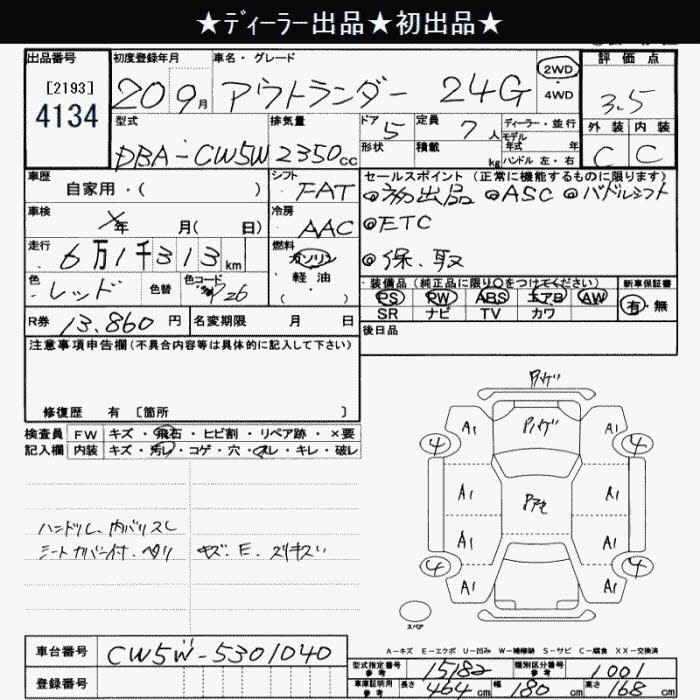 ★ディーラー出品★初出品★
出品番号
[2193]
4134
初度登録年月
20 9月
車名・グレード
アウトランダー 24G
2WD
・
4WD
評価点
3.5
外装 内装
C C
型式
DBA-CW5W
排気量
2350cc
ドア 5
形状
定員 7人
積載 kg
ディーラー・並行
モデル
年式 年
ハンドル 左・右
車歴
自家用・( )
シフト
FAT
セールスポイント (正常に機能するものに限ります)
◎初出品 ◎ASC ◎パドルシフト
◎ETC
◎保.取
車検
年 月( 日)
冷房
AAC
走行
6万1千313km
燃料
ガソリン
・
軽油
( )
色
レッド
色替
色コード
装備品 (純正品に限り○をつけてください)
PS PW ABS エアB AW
SR ナビ TV カワ
新車保証書
有・無
R券 13.860円
名変期限 月 日
後日品
注意事項申告欄(不具合内容等は具体的に記入して下さい)
修復歴 有 [箇所 ]
検査員 FW キズ・飛石・ヒビ割・リペア跡・×要
記入欄 内装 キズ・汚レ・コゲ・穴・スレ・キレ・破レ
ハンドルスレ、内バリスレ
シートカバー付、ヘタリ
キズ、E、スリキズ
アゲ
A1 A1
4 4
A1 A1
A1 A1
A1 A1
4 4
スペア
A-キズ E-エクボ U-凹み W-補修跡 S-サビ C-腐食 XX-交換済
車台番号 CW5W-5301040
登録番号
型式指定番号
参考
15182
類別区分番号
参考
1001
車庫証明用
参考
長さ 464cm 幅 180cm 高さ 168cm